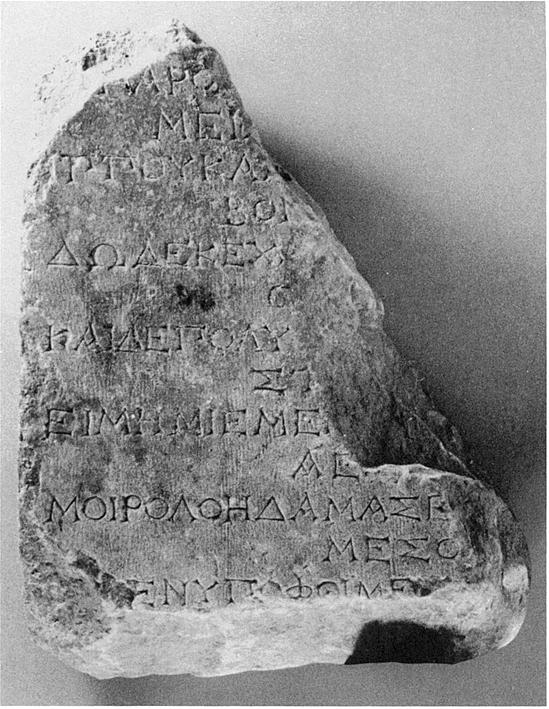 ΠΑΡΟ
ΜΕΙ
ΠΤΟΥΚΑ
ΒΟΙ
ΔΩΔΕΚΕΥ
Ο
ΚΑΙΔΕΠΟΛΥ
ΣΤ
ΕΙΜΗΜΙΕΜΕ
ΑΣ
ΜΟΙΡΟΛΟΗΔΑΜΑΣΕ
ΜΕΣΟ
ΕΝΥΠΟΦΘΙΜΕ